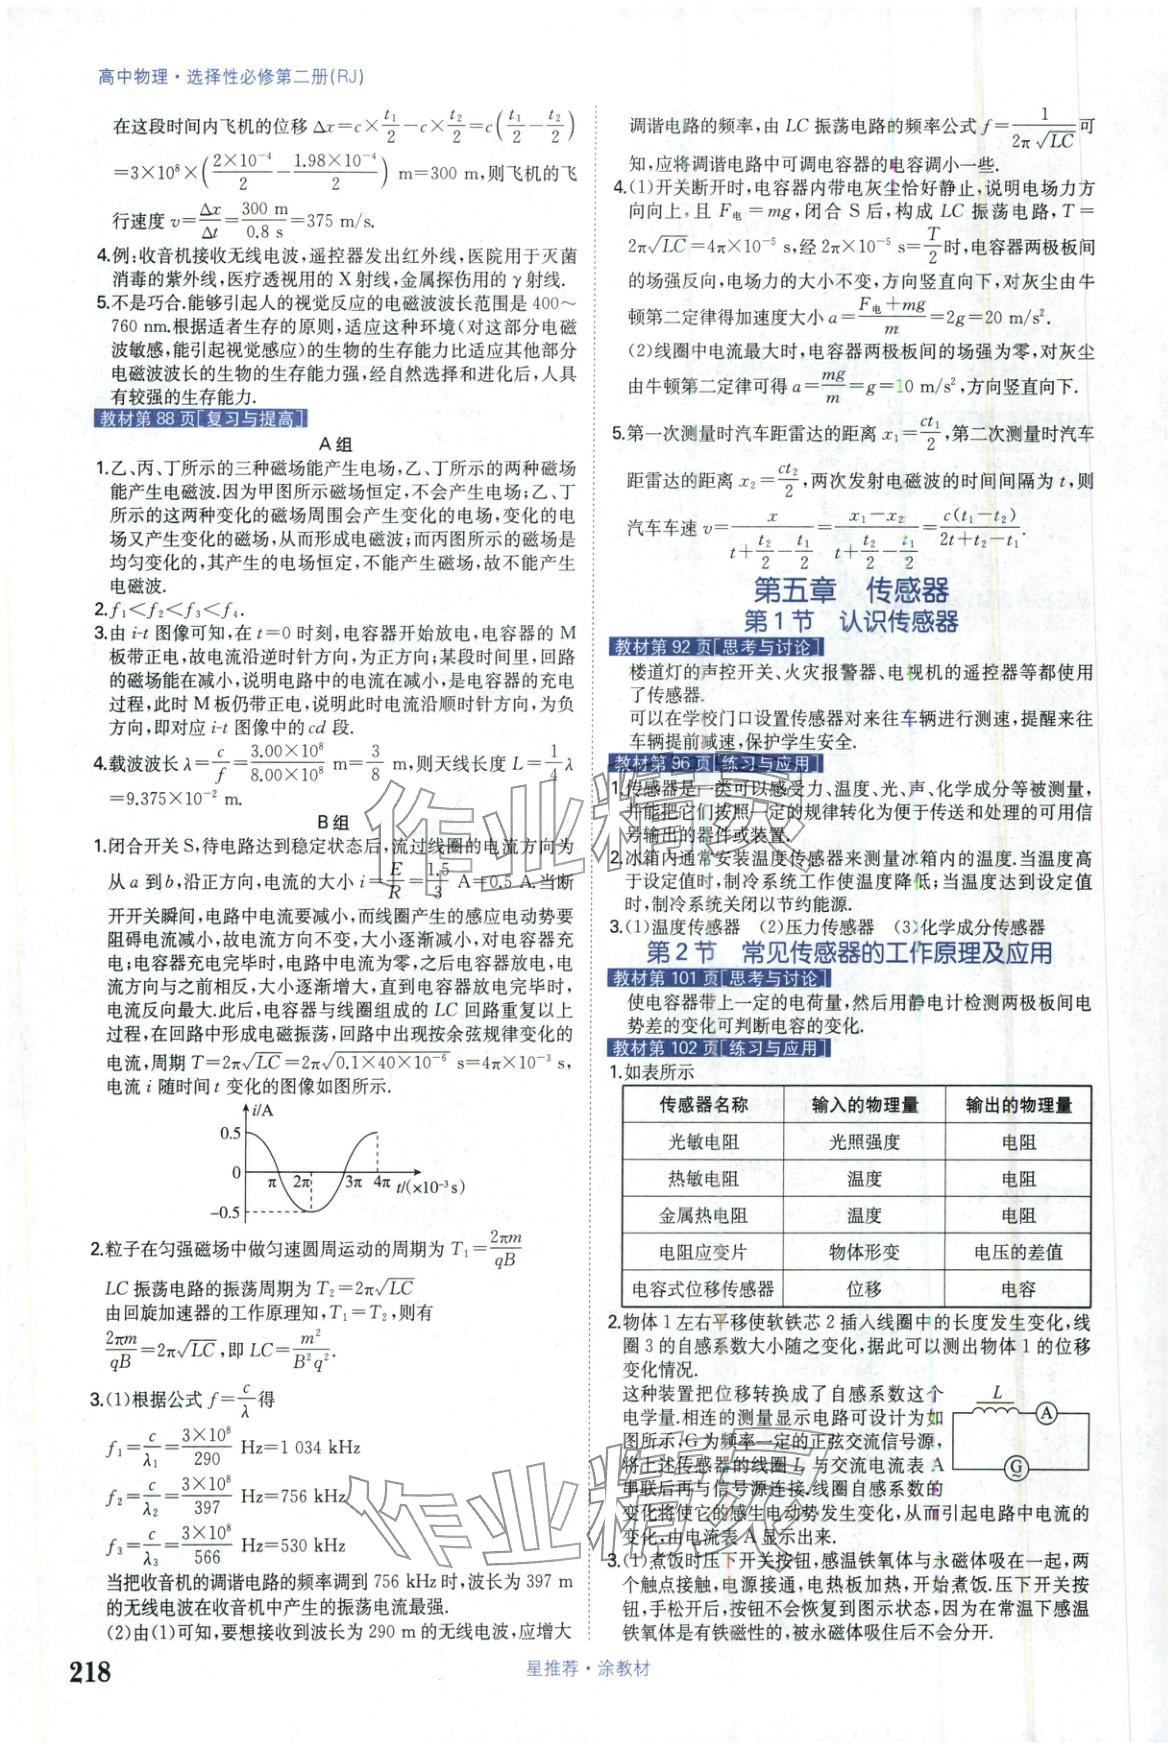 高中物理·选择性必修第二册(RJ)
在这段时间内飞机的位移 Δx=c×t₁/2-c×t₂/2=c(t₁/2-t₂/2)
=3×10⁸×(2×10⁻⁴/2-1.98×10⁻⁴/2) m=300 m,则飞机的飞
行速度 v=Δx/Δt=300 m/0.8 s=375 m/s.
4.例:收音机接收无线电波,遥控器发出红外线,医院用于灭菌
消毒的紫外线,医疗透视用的 X 射线,金属探伤用的 γ 射线.
5.不是巧合.能够引起人的视觉反应的电磁波波长范围是 400～
760 nm.根据适者生存的原则,适应这种环境(对这部分电磁
波敏感,能引起视觉感应)的生物的生存能力比适应其他部分
电磁波波长的生物的生存能力强,经自然选择和进化后,人具
有较强的生存能力.
教材第 88 页[复习与提高]
A 组
1.乙、丙、丁所示的三种磁场能产生电场,乙、丁所示的两种磁场
能产生电磁波.因为甲图所示磁场恒定,不会产生电场;乙、丁
所示的这两种变化的磁场周围会产生变化的电场,变化的电
场又产生变化的磁场,从而形成电磁波;而丙图所示的磁场是
均匀变化的,其产生的电场恒定,不能产生磁场,故不能产生
电磁波.
2.f₁<f₂<f₃<f₄.
3.由 i-t 图像可知,在 t=0 时刻,电容器开始放电,电容器的 M
板带正电,故电流沿逆时针方向,为正方向;某段时间里,回路
的磁场能在减小,说明电路中的电流在减小,是电容器的充电
过程,此时 M 板仍带正电,说明此时电流沿顺时针方向,为负
方向,即对应 i-t 图像中的 cd 段.
4.载波波长 λ=c/f=3.00×10⁸/8.00×10⁸ m=3/8 m,则天线长度 L=1/4λ
=9.375×10⁻² m.
B 组
1.闭合开关 S,待电路达到稳定状态后,流过线圈的电流方向为
从 a 到 b,沿正方向,电流的大小 i=E/R=1.5/3 A=0.5 A.当断
开开关瞬间,电路中电流要减小,而线圈产生的感应电动势要
阻碍电流减小,故电流方向不变,大小逐渐减小,对电容器充
电;电容器充电完毕时,电路中电流为零,之后电容器放电,电
流方向与之前相反,大小逐渐增大,直到电容器放电完毕时,
电流反向最大.此后,电容器与线圈组成的 LC 回路重复以上
过程,在回路中形成电磁振荡,回路中出现按余弦规律变化的
电流,周期 T=2π√LC=2π√0.1×40×10⁻⁶ s=4π×10⁻³ s,
电流 i 随时间 t 变化的图像如图所示.
i/A
0.5
0
π 2π 3π 4π t/(×10⁻³s)
-0.5
2.粒子在匀强磁场中做匀速圆周运动的周期为 T₁=2πm/qB
LC 振荡电路的振荡周期为 T₂=2π√LC
由回旋加速器的工作原理知,T₁=T₂,则有
2πm/qB=2π√LC,即 LC=m²/B²q².
3.(1)根据公式 f=c/λ得
f₁=c/λ₁=3×10⁸/290 Hz=1 034 kHz
f₂=c/λ₂=3×10⁸/397 Hz=756 kHz
f₃=c/λ₃=3×10⁸/566 Hz=530 kHz
当把收音机的调谐电路的频率调到 756 kHz 时,波长为 397 m
的无线电波在收音机中产生的振荡电流最强.
(2)由(1)可知,要想接收到波长为 290 m 的无线电波,应增大
调谐电路的频率,由 LC 振荡电路的频率公式 f=1/2π√LC可
知,应将调谐电路中可调电容器的电容调小一些.
4.(1)开关断开时,电容器内带电灰尘恰好静止,说明电场力方
向向上,且 F电=mg,闭合 S 后,构成 LC 振荡电路,T=
2π√LC=4π×10⁻⁵ s,经 2π×10⁻⁵ s=T/2时,电容器两极板间
的场强反向,电场力的大小不变,方向竖直向下,对灰尘由牛
顿第二定律得加速度大小 a=F电+mg/m=2g=20 m/s².
(2)线圈中电流最大时,电容器两极板间的场强为零,对灰尘
由牛顿第二定律可得 a=mg/m=g=10 m/s²,方向竖直向下.
5.第一次测量时汽车距雷达的距离 x₁=ct₁/2,第二次测量时汽车
距雷达的距离 x₂=ct₂/2,两次发射电磁波的时间间隔为 t,则
汽车车速 v=x/(t+t₂/2-t₁/2)=x₁-x₂/(t+t₂/2-t₁/2)=c(t₁-t₂)/2t+t₂-t₁.
第五章 传感器
第 1 节 认识传感器
教材第 92 页[思考与讨论]
楼道灯的声控开关、火灾报警器、电视机的遥控器等都使用
了传感器.
可以在学校门口设置传感器对来往车辆进行测速,提醒来往
车辆提前减速,保护学生安全.
教材第 96 页[练习与应用]
1.传感器是一类可以感受力、温度、光、声、化学成分等被测量,
并能把它们按照一定的规律转化为便于传送和处理的可用信
号输出的器件或装置.
2.冰箱内通常安装温度传感器来测量冰箱内的温度.当温度高
于设定值时,制冷系统工作使温度降低;当温度达到设定值
时,制冷系统关闭以节约能源.
3.(1)温度传感器 (2)压力传感器 (3)化学成分传感器
第 2 节 常见传感器的工作原理及应用
教材第 101 页[思考与讨论]
使电容器带上一定的电荷量,然后用静电计检测两极板间电
势差的变化可判断电容的变化.
教材第 102 页[练习与应用]
1.如表所示
传感器名称 输入的物理量 输出的物理量
光敏电阻 光照强度 电阻
热敏电阻 温度 电阻
金属热电阻 温度 电阻
电阻应变片 物体形变 电压的差值
电容式位移传感器 位移 电容
2.物体 1 左右平移使软铁芯 2 插入线圈中的长度发生变化,线
圈 3 的自感系数大小随之变化,据此可以测出物体 1 的位移
变化情况.
这种装置把位移转换成了自感系数这个
电学量.相连的测量显示电路可设计为如
图所示,G 为频率一定的正弦交流信号源,
将上述传感器的线圈 L 与交流电流表 A
串联后再与信号源连接.线圈自感系数的
L
A
G
变化将使它的感生电动势发生变化,从而引起电路中电流的
变化,由电流表 A 显示出来.
3.(1)煮饭时压下开关按钮,感温铁氧体与永磁体吸在一起,两
个触点接触,电源接通,电热板加热,开始煮饭.压下开关按
钮,手松开后,按钮不会恢复到图示状态,因为在常温下感温
铁氧体是有铁磁性的,被永磁体吸住后不会分开.
作业精灵
作业精灵
218
星推荐·涂教材